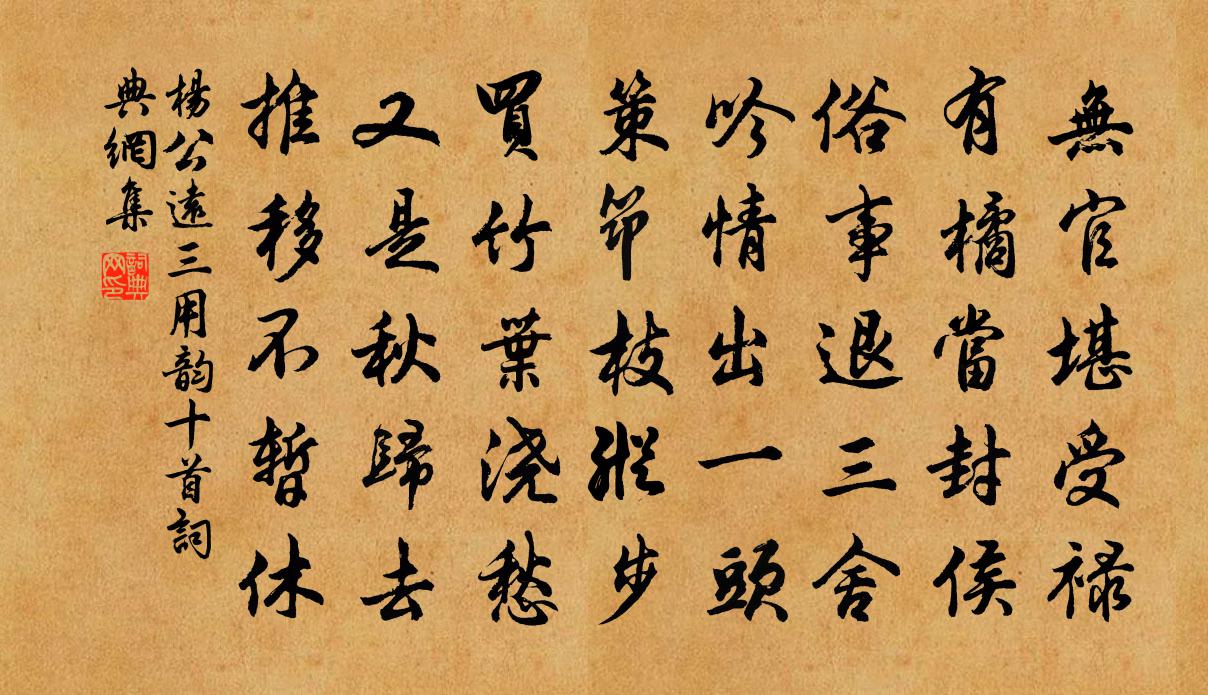 無官堪受禄
有橘當封侯
俗事退三舍
吟情出一頭
策笻枝縱步
買竹葉浇愁
又是秋歸去
推移不暫休
楊公遠三用韵十首詞
典網集
詞典
网印